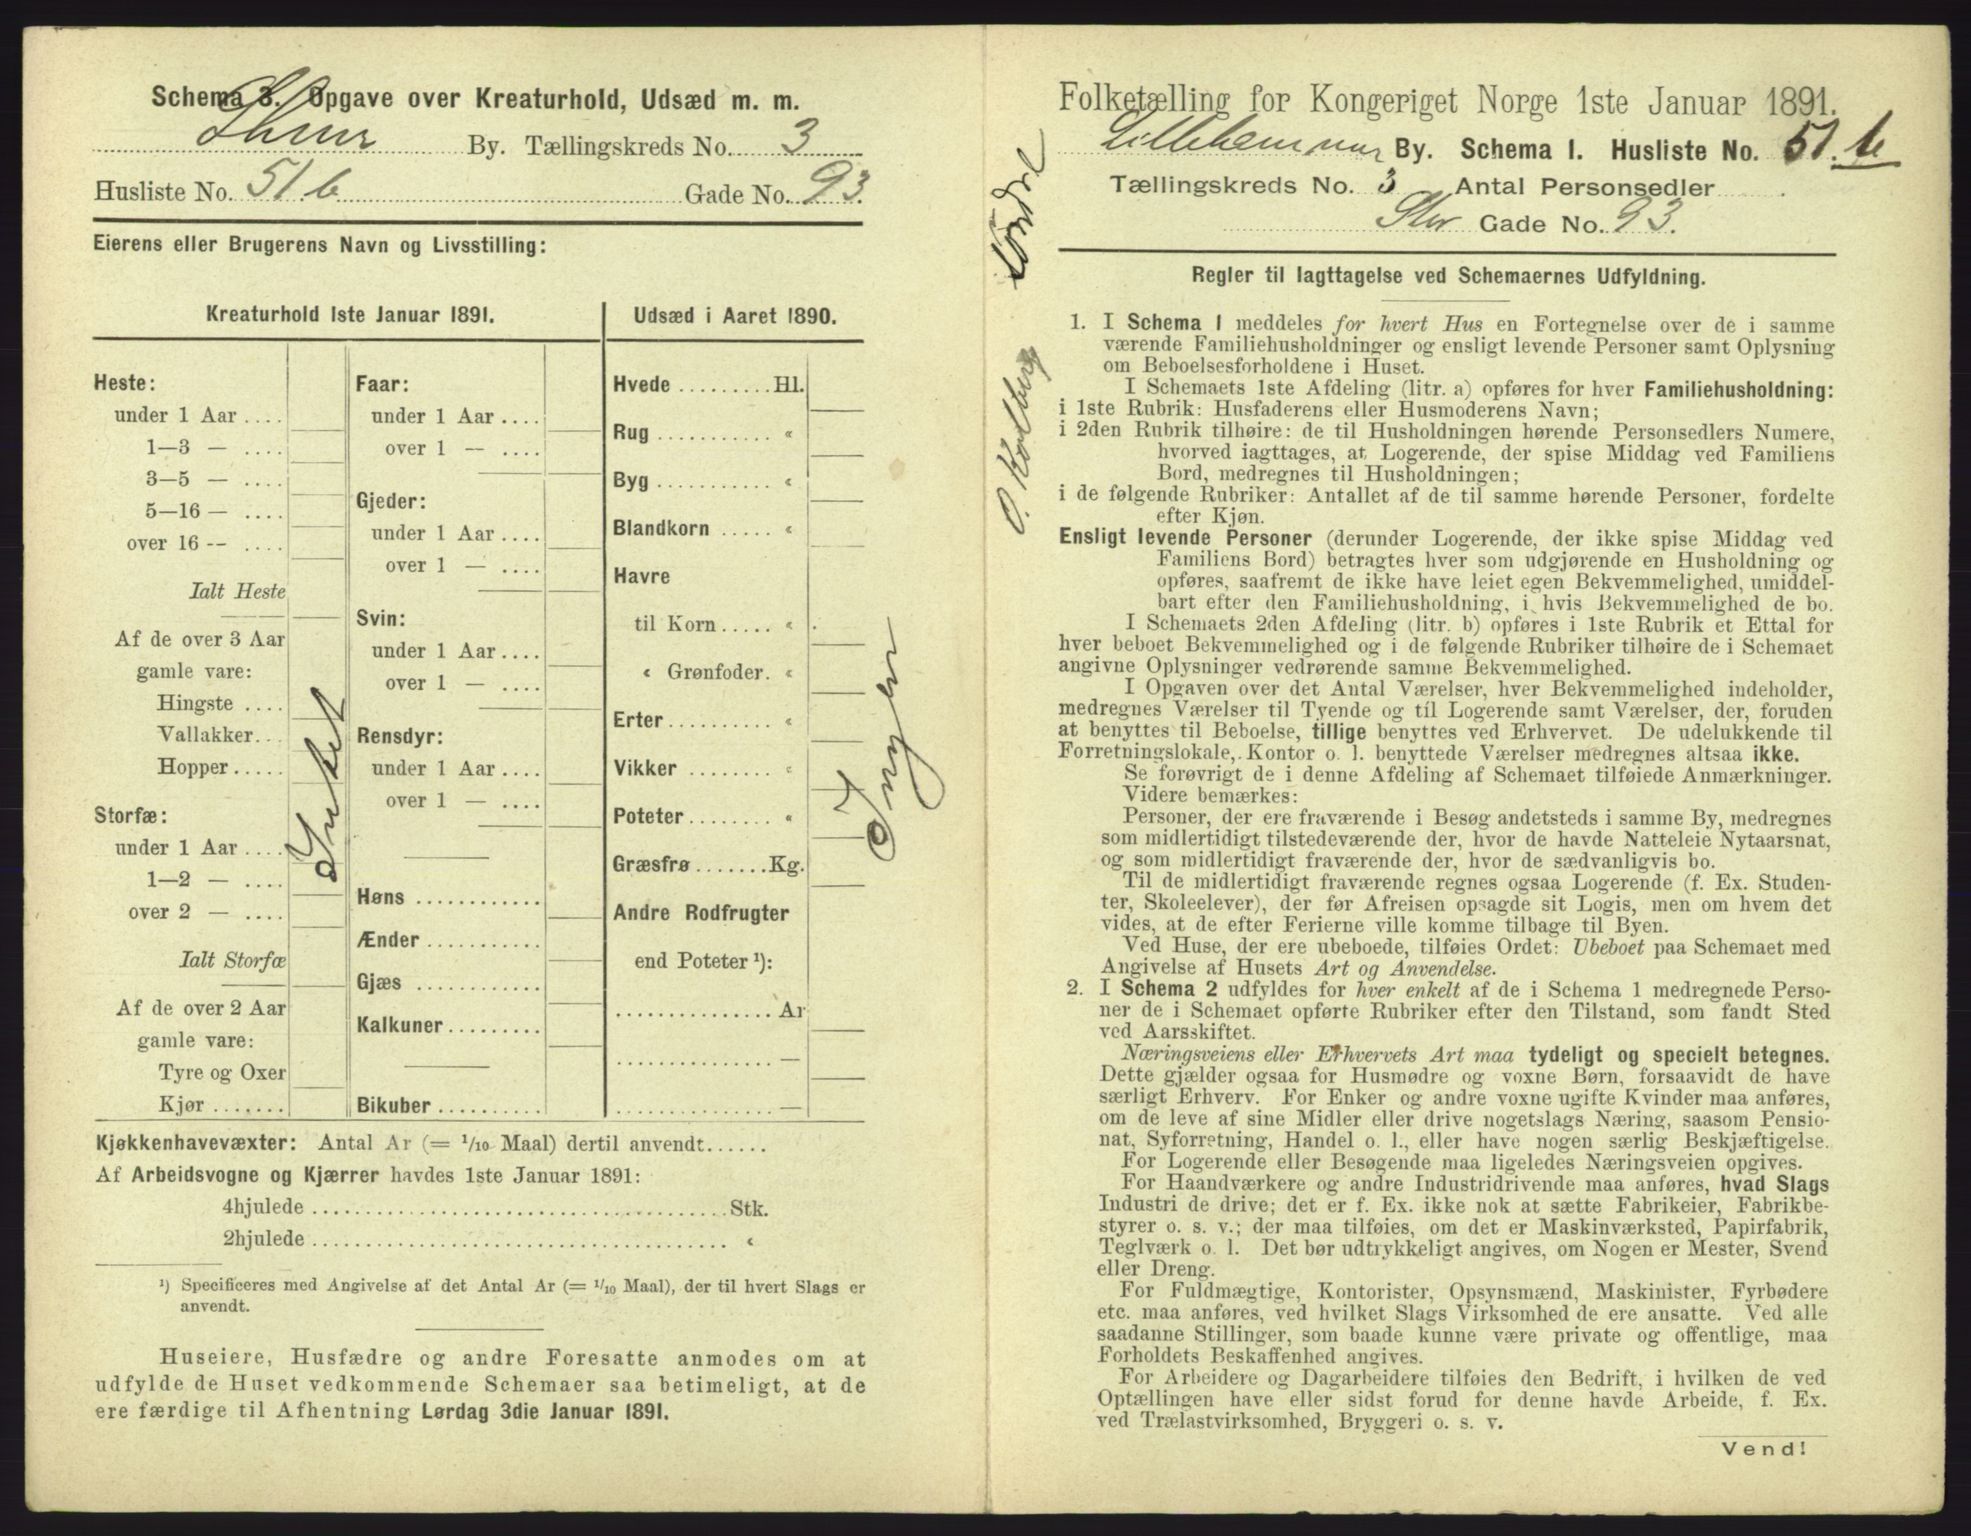 Schema 3. Opgave over Kreaturhold, Udsæd m. m.
By. Tællingskreds No. 3
Husliste No. 51 b Gade No. 93.
Eierens eller Brugerens Navn og Livsstilling:
Kreaturhold 1ste Januar 1891.
Heste:
under 1 Aar ....
1—3 — ....
3—5 — ....
5—16 — ....
over 16 -- ....
Ialt Heste
Af de over 3 Aar
gamle vare:
Hingste ....
Vallakker...
Hopper.....
Storfæ:
under 1 Aar ....
1—2 — ....
over 2 — ....
Ialt Storfæ
Af de over 2 Aar
gamle vare:
Tyre og Oxer
Kjør .......
Intet
Faar:
under 1 Aar ....
over 1 — ....
Gjeder:
under 1 Aar ....
over 1 — ....
Svin:
under 1 Aar ....
over 1 — ....
Rensdyr:
under 1 Aar ....
over 1 — ....
Høns ............
Ænder ...........
Gjæs ............
Kalkuner.........
Bikuber ..........
Udsæd i Aaret 1890.
Hvede .........Hl.
Rug ........... «
Byg ........... «
Blandkorn ..... «
Havre
til Korn ..... «
« Grønfoder. «
Erter .......... «
Vikker ........ «
Poteter ........ «
Græsfrø .......Kg.
Andre Rodfrugter
end Poteter ¹):
............... Ar
............... —
............... —
Ingen
Kjøkkenhavevæxter: Antal Ar (= 1/10 Maal) dertil anvendt......
Af Arbeidsvogne og Kjærrer havdes 1ste Januar 1891:
4hjulede ....................................... Stk.
2hjulede ....................................... «
¹) Specificeres med Angivelse af det Antal Ar (= 1/10 Maal), der til hvert Slags er
anvendt.
Huseiere, Husfædre og andre Foresatte anmodes om at
udfylde de Huset vedkommende Schemaer saa betimeligt, at de
ere færdige til Afhentning Lørdag 3die Januar 1891.
O. Kolberg
Folketælling for Kongeriget Norge 1ste Januar 1891.
Lillehammer By. Schema I. Husliste No. 51. b
Tællingskreds No. 3 Antal Personsedler
Stor Gade No. 93.
Regler til Iagttagelse ved Schemaernes Udfyldning.
1. I Schema 1 meddeles for hvert Hus en Fortegnelse over de i samme
værende Familiehusholdninger og ensligt levende Personer samt Oplysning
om Beboelsesforholdene i Huset.
I Schemaets 1ste Afdeling (litr. a) opføres for hver Familiehusholdning:
i 1ste Rubrik: Husfaderens eller Husmoderens Navn;
i 2den Rubrik tilhøire: de til Husholdningen hørende Personsedlers Numere,
hvorved iagttages, at Logerende, der spise Middag ved Familiens
Bord, medregnes til Husholdningen;
i de følgende Rubriker: Antallet af de til samme hørende Personer, fordelte
efter Kjøn.
Ensligt levende Personer (derunder Logerende, der ikke spise Middag ved
Familiens Bord) betragtes hver som udgjørende en Husholdning og
opføres, saafremt de ikke have leiet egen Bekvemmelighed, umiddel-
bart efter den Familiehusholdning, i hvis Bekvemmelighed de bo.
I Schemaets 2den Afdeling (litr. b) opføres i 1ste Rubrik et Ettal for
hver beboet Bekvemmelighed og i de følgende Rubriker tilhøire de i Schemaet
angivne Oplysninger vedrørende samme Bekvemmelighed.
I Opgaven over det Antal Værelser, hver Bekvemmelighed indeholder,
medregnes Værelser til Tyende og til Logerende samt Værelser, der, foruden
at benyttes til Beboelse, tillige benyttes ved Erhvervet. De udelukkende til
Forretningslokale, Kontor o. l. benyttede Værelser medregnes altsaa ikke.
Se forøvrigt de i denne Afdeling af Schemaet tilføiede Anmærkninger.
Videre bemærkes:
Personer, der ere fraværende i Besøg andetsteds i samme By, medregnes
som midlertidigt tilstedeværende der, hvor de havde Natteleie Nytaarsnat,
og som midlertidigt fraværende der, hvor de sædvanligvis bo.
Til de midlertidigt fraværende regnes ogsaa Logerende (f. Ex. Studen-
ter, Skoleelever), der før Afreisen opsagde sit Logis, men om hvem det
vides, at de efter Ferierne ville komme tilbage til Byen.
Ved Huse, der ere ubeboede, tilføies Ordet: Ubeboet paa Schemaet med
Angivelse af Husets Art og Anvendelse.
2. I Schema 2 udfyldes for hver enkelt af de i Schema 1 medregnede Perso-
ner de i Schemaet opførte Rubriker efter den Tilstand, som fandt Sted
ved Aarsskiftet.
Næringsveiens eller Erhvervets Art maa tydeligt og specielt betegnes.
Dette gjælder ogsaa for Husmødre og voxne Børn, forsaavidt de have
særligt Erhverv. For Enker og andre voxne ugifte Kvinder maa anføres,
om de leve af sine Midler eller drive nogetslags Næring, saasom Pensio-
nat, Syforretning, Handel o. l., eller have nogen særlig Beskjæftigelse.
For Logerende eller Besøgende maa ligeledes Næringsveien opgives.
For Haandværkere og andre Industridrivende maa anføres, hvad Slags
Industri de drive; det er f. Ex. ikke nok at sætte Fabrikeier, Fabrikbe-
styrer o. s. v.; der maa tilføies, om det er Maskinværksted, Papirfabrik,
Teglværk o. l. Det bør udtrykkeligt angives, om Nogen er Mester, Svend
eller Dreng.
For Fuldmægtige, Kontorister, Opsynsmænd, Maskinister, Fyrbødere
etc. maa anføres, ved hvilket Slags Virksomhed de ere ansatte. Ved alle
saadanne Stillinger, som baade kunne være private og offentlige, maa
Forholdets Beskaffenhed angives.
For Arbeidere og Dagarbeidere tilføies den Bedrift, i hvilken de ved
Optællingen have eller sidst forud for denne havde Arbeide, f. Ex.
ved Trælastvirksomhed, Bryggeri o. s. v.
Vend!